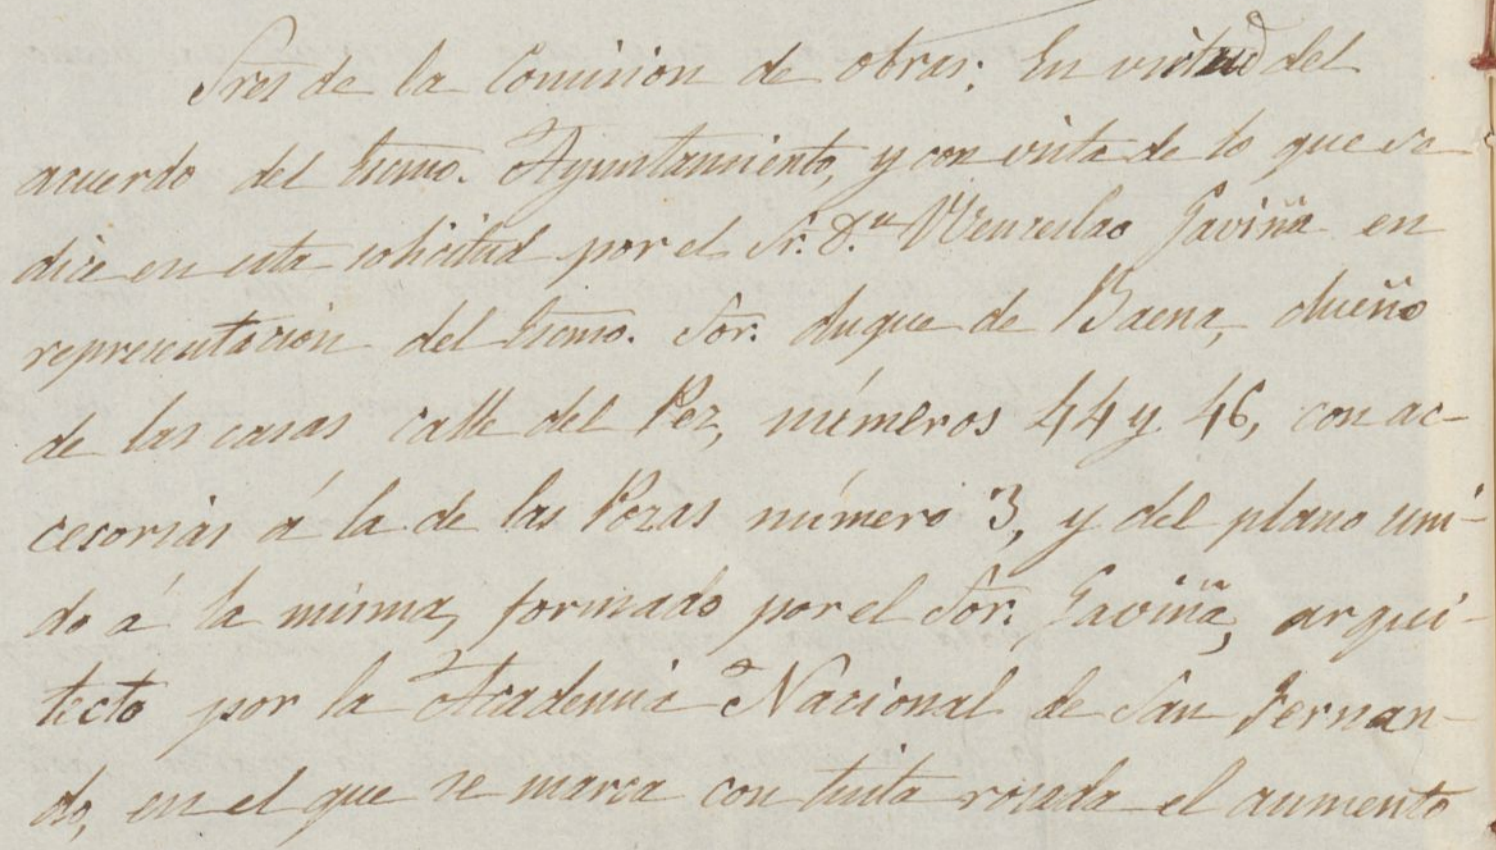 Sres de la Comision de obras; En virtud del
acuerdo del Excmo. Ayuntamiento, y con vista de lo que se
dice en esta solicitud por el Sr. D.n Wenceslao Gaviña en
representacion del Excmo. Sor. duque de Baena, dueño
de las casas calle del Pez, números 44 y 46, con ac-
cesorias á la de las Pozas número 3, y del plano uni-
do á la misma, formado por el Sor. Gaviña, arqui-
tecto por la Academia Nacional de San Fernan-
do, en el que se marca con tinta rosada el aumento